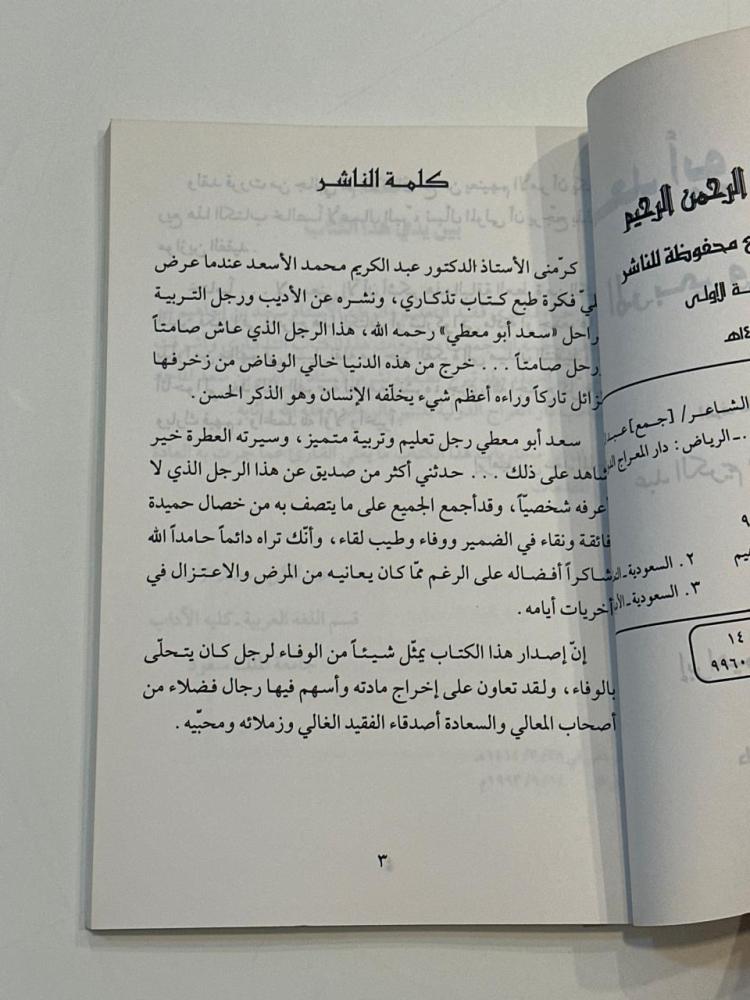 كلمة الناشر
كرّمنى الأستاذ الدكتور عبد الكريم محمد الأسعد عندما عرض
عليّ فكرة طبع كتاب تذكاري، ونشره عن الأديب ورجل التربية
الراحل «سعد أبو معطي» رحمه الله، هذا الرجل الذي عاش صامتاً
ورحل صامتاً . . . خرج من هذه الدنيا خالي الوفاض من زخرفها
الزائل تاركاً وراءه أعظم شيء يخلّفه الإنسان وهو الذكر الحسن .
سعد أبو معطي رجل تعليم وتربية متميز، وسيرته العطرة خير
شاهد على ذلك . . . حدثني أكثر من صديق عن هذا الرجل الذي لا
أعرفه شخصيّاً، وقدأجمع الجميع على ما يتصف به من خصال حميدة
فائقة ونقاء في الضمير ووفاء وطيب لقاء، وأنّك تراه دائماً حامداً الله
شاكراً أفضاله على الرغم ممّا كان يعانيه من المرض والاعتزال في
أخريات أيامه .
إنّ إصدار هذا الكتاب يمثّل شيئاً من الوفاء لرجل كان يتحلّى
بالوفاء، ولقد تعاون على إخراج مادته وأسهم فيها رجال فضلاء من
أصحاب المعالي والسعادة أصدقاء الفقيد الغالي وزملائه ومحبّيه .
٣
الرحمن الرحيم
محفوظة للناشر
الاولى
الشاعر/ [جمع]
.ـ الرياض : دار المعراج
٢ . السعودية
٣ . السعودية
١٤
٩٩٦٠